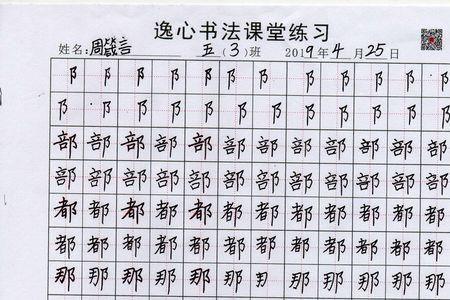 逸心书法课堂练习
姓名:周箴言 五(3)班 2019年4月25日
阝 阝 阝 阝 阝 阝 阝 阝 阝 阝 阝 阝
阝 阝 阝 阝 阝 阝 阝 阝 阝 阝 阝 阝
部 部 部 部 部 部 部 部 部 部 部 部
部 部 部 部 部 部 部 部 部 部 部 部
都 都 都 都 都 都 都 都 都 都 都 都
都 都 都 都 都 都 都 都 都 都 都 都
那 那 那 那 那 那 那 那 那 那 那